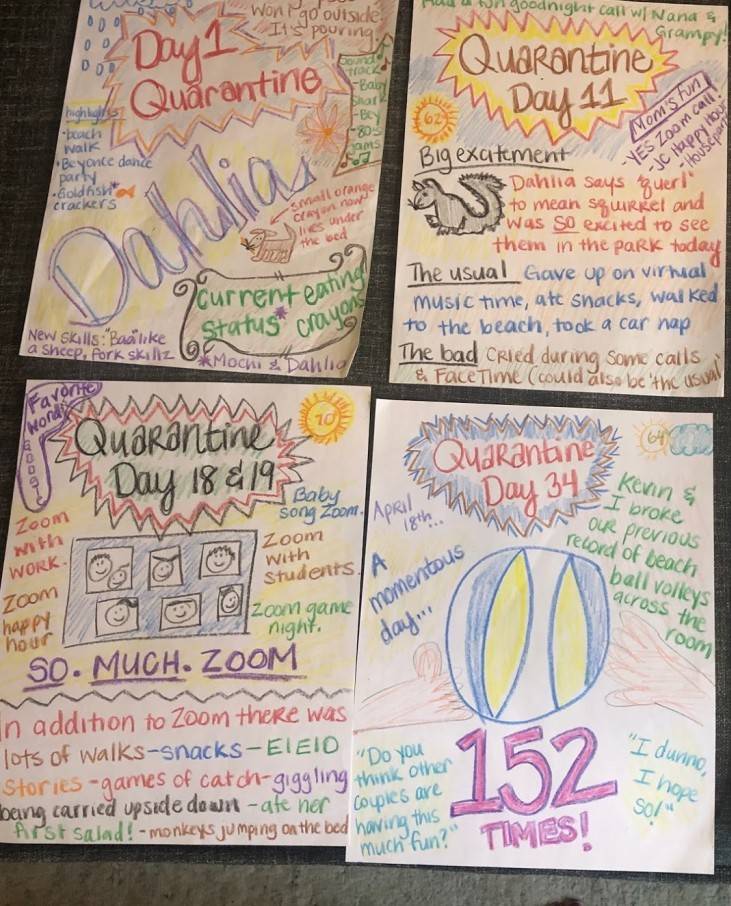 Won't go outside
It's pouring
Day 1
Quarantine
Sound
track
-Baby
Shark
-Bey
-80s
jams
highlights
-beach
walk
•Beyonce dance
party
•Goldfish
crackers
Dahlia
small orange
crayon now
lives under
the bed
Current eating
status* crayons
New Skills: "Baa" like
a sheep, fork skillz
*Mochi & Dahlia
Had a fun goodnight call w/ Nana &
Grampy!
Quarantine
Day 11
62
Mom's fun
-YES Zoom call!
-JC Happy Hour
Big excitement
Dahlia says "querl"
to mean squirrel and
was SO excited to see
them in the park today
The usual Gave up on virtual
music time, ate snacks, walked
to the beach, took a car nap
The bad Cried during some calls
& FaceTime (could also be "the usual"
Favorite
word:
Quarantine
Day 18 & 19
70
Baby
song Zoom.
Zoom
with
work.
Zoom
with
students.
Zoom
happy
hour
Zoom game
night.
SO. MUCH. ZOOM
In addition to Zoom there was
lots of walks-snacks-EIEIO
stories-games of catch-giggling
being carried upside down-ate her
first salad!-monkeys jumping on the bed
Quarantine
Day 34
64
April
18th...
A
momentous
day...
Kevin &
I broke
our previous
record of beach
ball volleys
across the
room
152
TIMES!
"Do you
think other
couples are
having this
much fun?"
"I dunno,
I hope
so!"